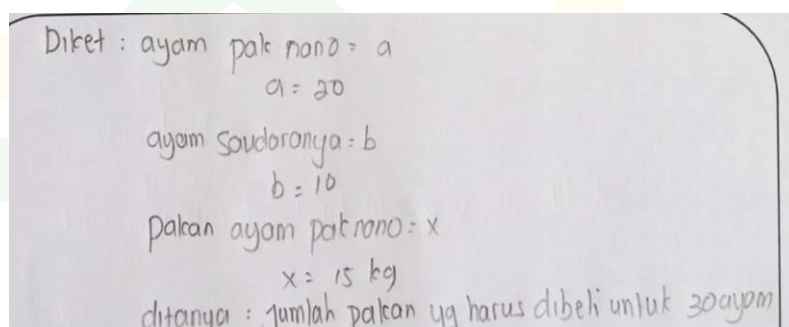 Diket : ayam pak nono = a
a = 20
ayam Saudaranya = b
b = 10
Pakan ayam pak nono = x
x = 15 kg
ditanya : Jumlah pakan yg harus dibeli untuk 30 ayam